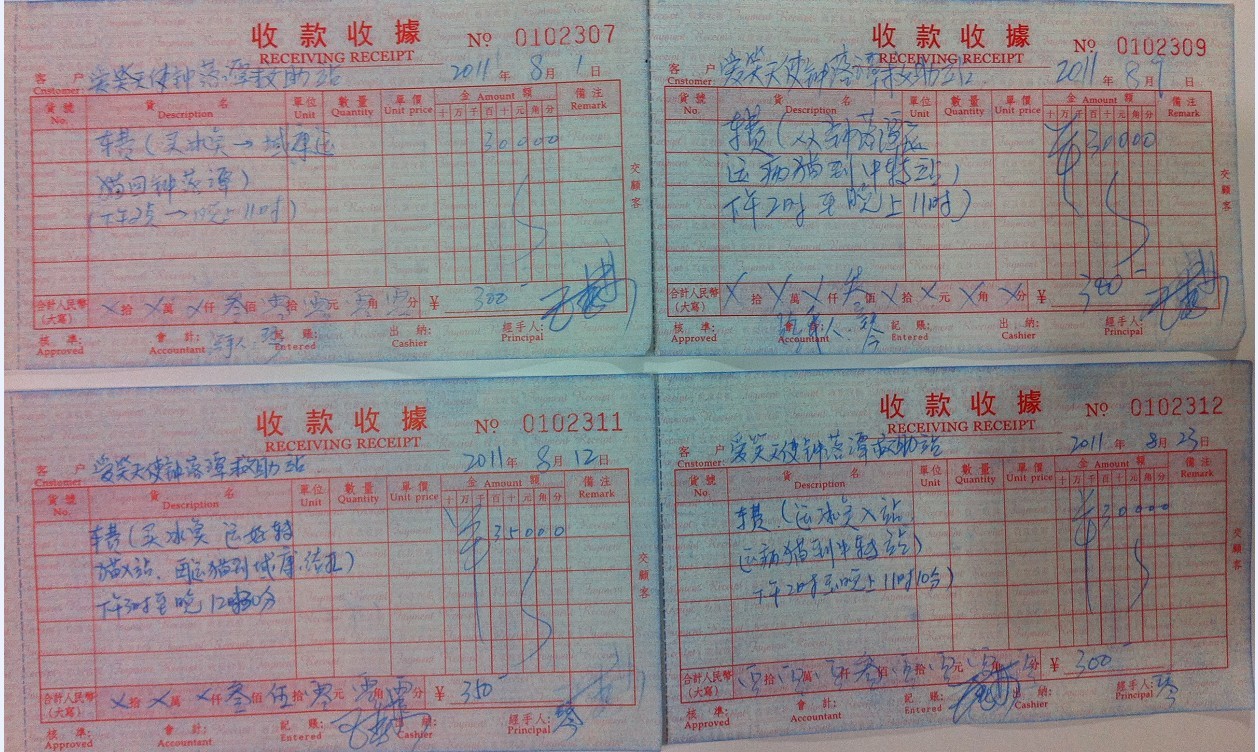 收款收據 № 0102307
RECEIVING RECEIPT
客戶 爱笑天使钟落潭救助站 2011年8月1日
Cnstomer:
貨號 貨名 單位 數量 單價 金 Amount 額 備注
No. Description Unit Quantity Unit price 十萬千百十元角分 Remark
车费(买冰鱼→域康运 30000
猫回钟落潭)
(下午2点→晚上11时)
交顧客
合計人民幣 ㄨ拾ㄨ萬ㄨ仟叁佰零拾零元零角零分 ¥ 300
(大寫)
核準: 會計: 記賬: 出納: 經手人:
Approved Accountant Entered Cashier Principal
收款收據 № 0102309
RECEIVING RECEIPT
客戶 爱笑天使钟落潭救助站 2011年8月9日
Cnstomer:
貨號 貨名 單位 數量 單價 金 Amount 額 備注
No. Description Unit Quantity Unit price 十萬千百十元角分 Remark
车费(从钟落潭 ¥30000
运病猫到中转站)
下午2时至晚上11时)
交顧客
合計人民幣 ㄨ拾ㄨ萬ㄨ仟叁佰ㄨ拾ㄨ元ㄨ角ㄨ分 ¥ 300
(大寫)
核準: 會計: 記賬: 出納: 經手人:
Approved Accountant Entered Cashier Principal
收款收據 № 0102311
RECEIVING RECEIPT
客戶 爱笑天使钟落潭救助站 2011年8月12日
Cnstomer:
貨號 貨名 單位 數量 單價 金 Amount 額 備注
No. Description Unit Quantity Unit price 十萬千百十元角分 Remark
车费(买冰鱼 运好转 ¥35000
猫入站、再运猫到域康.结扎)
下午3时至晚12时30分
交顧客
合計人民幣 ㄨ拾ㄨ萬ㄨ仟叁佰伍拾零元零角零分 ¥ 350
(大寫)
核準: 會計: 記賬: 出納: 經手人:
Approved Accountant Entered Cashier Principal
收款收據 № 0102312
RECEIVING RECEIPT
客戶 爱笑天使钟落潭救助站 2011年8月23日
Cnstomer:
貨號 貨名 單位 數量 單價 金 Amount 額 備注
No. Description Unit Quantity Unit price 十萬千百十元角分 Remark
车费(运冰鱼入站 ¥30000
运病猫到中转站)
下午2时至晚上11时10分)
交顧客
合計人民幣 拾萬仟叁佰拾元角分 ¥ 300
(大寫)
核準: 會計: 記賬: 出納: 經手人:
Approved Accountant Entered Cashier Principal